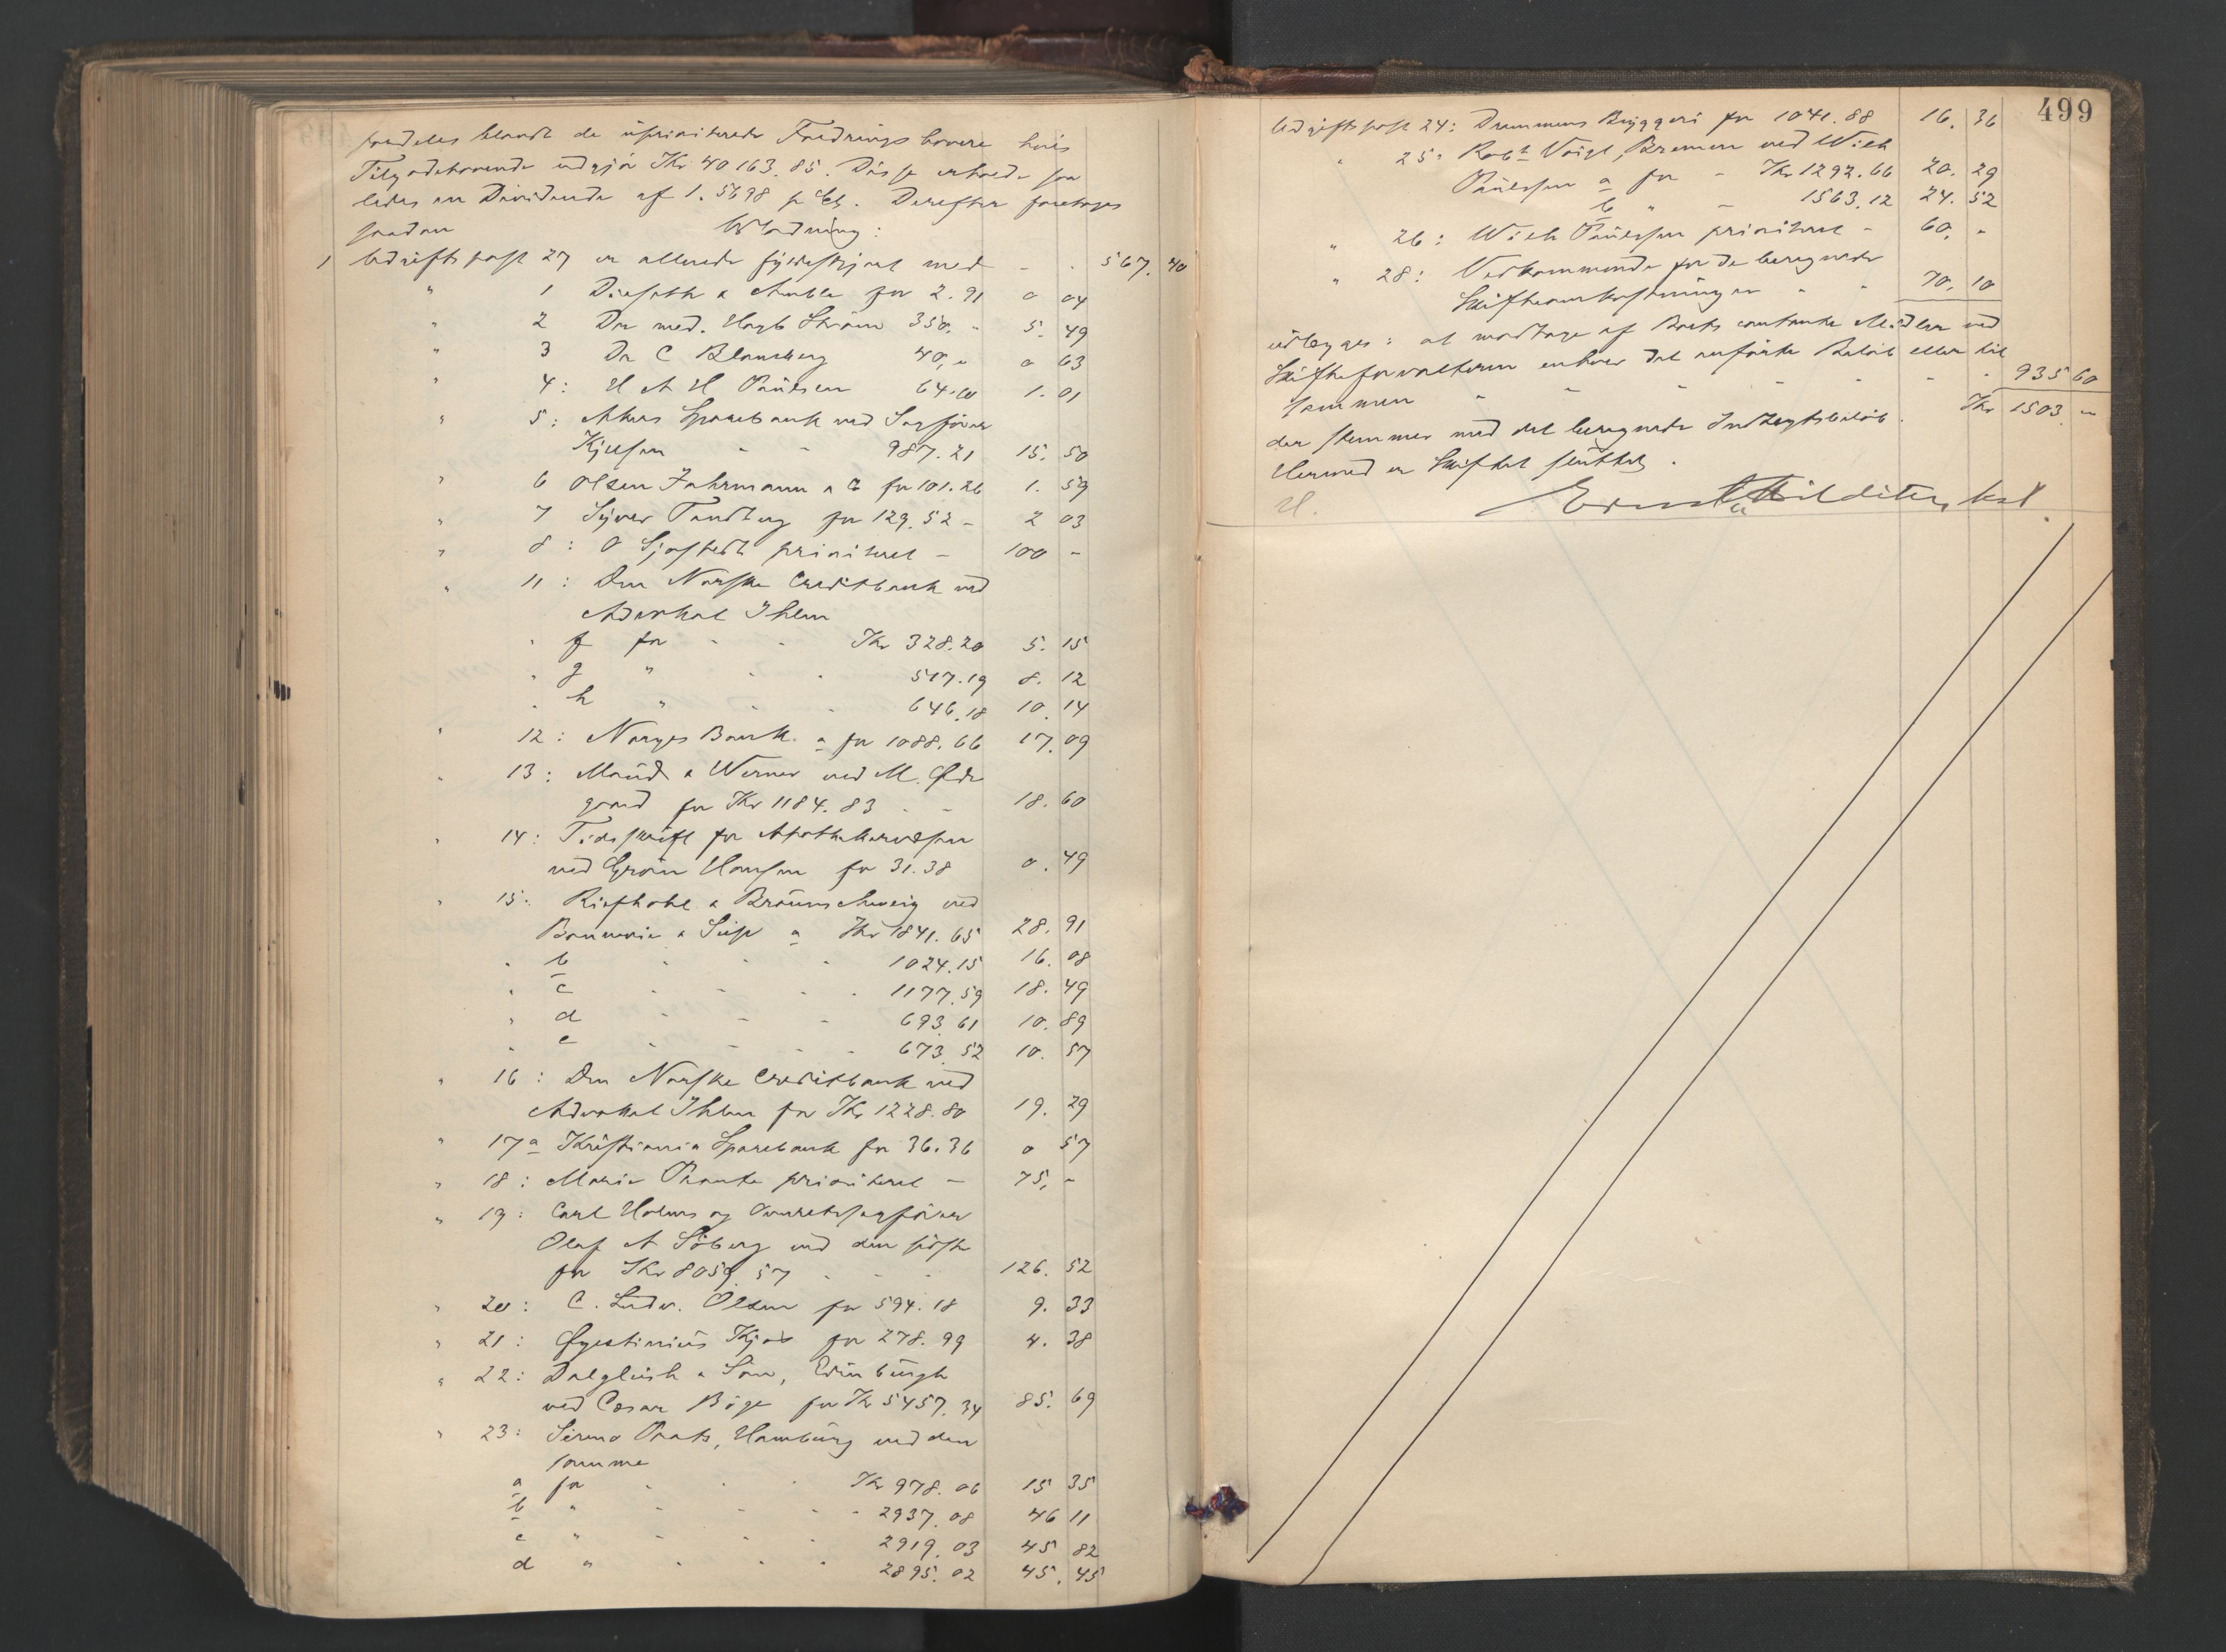 fordeles blandt de uprioriterede Fordringshavere hvis
Tilgodehavende udgjør Kr 40163.85. Disse erholde saa
ledes en Dividende af 1.5698 p Ct. Derefter foretages
saadan Udlodning:
1 Udgiftspost 27 er allerede fyldestgjort med - - 567.40
" 1 Dieseth & for 2.91 0 04
" 2 Dr med. Hagb Strøm 350.- 5. 49
" 3 Dr C Blomberg 40,- 0 63
" 4: H A H Paulsen 64.00 1.01
" 5: Akers Sparebank ved Sagfører
Kjelsen - - 987.21 15. 50
" 6 Olsen Fahrmann & C for 101.26 1. 59
" 7 Syver Tandberg for 129.52 - 2 03
" 8: O Sjøstedt prioriteret - 100 -
" 11: Den Norske Creditbank ved
Advokat Ihlen
" f for - - Kr 328.20 5. 15
" g " - - 517.19 8. 12
" h " - - 646.18 10. 14
" 12: Norges Bank. a for 1088.66 17.09
" 13: Maud & Werner ved M. Øde
gaard for Kr 1184.83 - - 18.60
" 14: Tidsskrift for Apothekervæsen
ved Grøn Hansen for 31.38 0.49
" 15: Riefstahl & Braunschweig ved
Bonnevie & Siem a Kr 1841.65 28.91
" b - - - 1024.15 16.08
" c - - - 1177.59 18.49
" d - - - 693.61 10.89
" e - - - 673.52 10.57
" 16: Den Norske Creditbank ved
Advokat Ihlen for Kr 1228.80 19.29
" 17a Kristiania Sparebank for 36.36 0 57
" 18: Marie prioriteret - 75,-
" 19: Carl Holms og Overretssagfører
Olaf A Søberg ved den sidste
for Kr 8059.57 - - - 126.52
" 20: C. Ludv. Olsen for 594.18 9. 33
" 21: Kjos for 278.99 4. 38
" 22: Dalglish & Son, Edinburgh
ved Cæsar Bøge for Kr 5457.34 85. 69
" 23: Hamburg ved den
samme
a for - - - Kr 978.06 15 35
b " - - - 2937.08 46 11
c " - - - 2919.03 45 82
d " - - - 2895.02 45.45
499
Udgiftspost 24: Drammens Bryggeri for 1041.88 16. 36
" 25: Robt Voigt, Bremen ved Wilh
Paulsen a for - Kr 1292.66 20. 29
b " - 1563.12 24. 52
" 26: Wilh Paulsen prioriteret - 60, -
" 28: Vedkommende for de beregnede
Skifteomkostninger - - 70, 10
udlægges: at modtage af Boets contante Midler ved
Skifteforvalteren enhver det anførte Beløb eller til
sammen - - - - - - 935 60
Kr 1503 -
der stemmer med det beregnede Indtægtsbeløb.
Hermed er Skiftet sluttet.